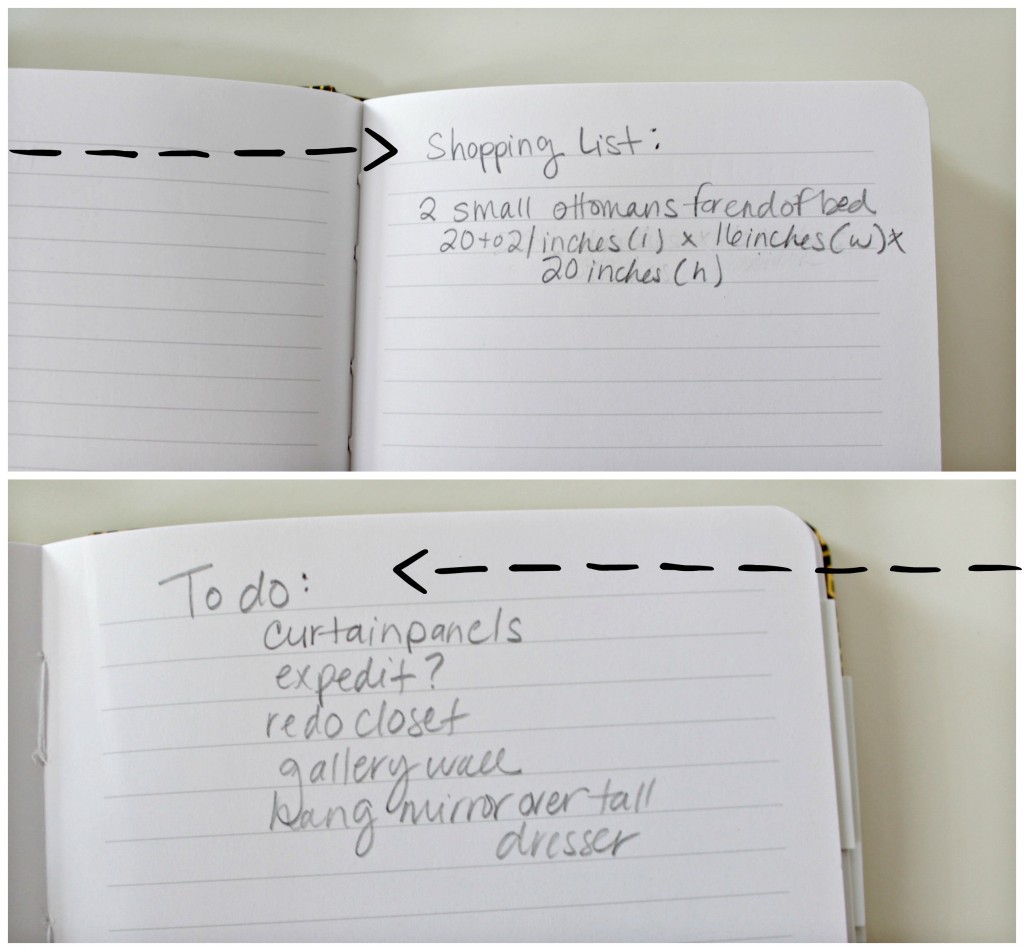 Shopping List:
2 small ottomans for end of bed
20 to 21 inches (l) x 16 inches (w) x
20 inches (h)
To do:
curtain panels
expedit?
redo closet
gallery wall
hang mirror over tall
dresser